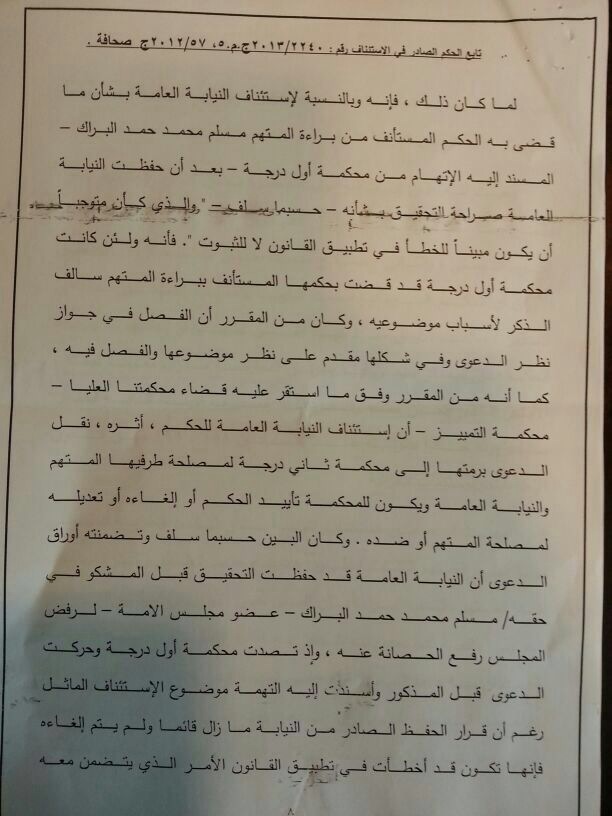 تابع الحكم الصادر في الاستئناف رقم : ٢٠١٣/٢٢٤٠ج.م.٥، ٢٠١٢/٥٧ج صحافة .
لما كان ذلك ، فإنه وبالنسبة لإستئناف النيابة العامة بشأن ما
قضى به الحكم المستأنف من براءة المتهم مسلم محمد حمد البراك –
المسند إليه الإتهام من محكمة أول درجة – بعد أن حفظت النيابة
العامة صراحة التحقيق بشأنه – حسبما سلف – " والذي كان متوجباً
أن يكون مبيناً للخطأ في تطبيق القانون لا للثبوت ". فأنه ولئن كانت
محكمة أول درجة قد قضت بحكمها المستأنف ببراءة المتهم سالف
الذكر لأسباب موضوعيه ، وكان من المقرر أن الفصل في جواز
نظر الدعوى وفي شكلها مقدم على نظر موضوعها والفصل فيه ،
كما أنه من المقرر وفق ما استقر عليه قضاء محكمتنا العليا –
محكمة التمييز – أن إستئناف النيابة العامة للحكم ، أثره ، نقل
الدعوى برمتها إلى محكمة ثاني درجة لمصلحة طرفيها المتهم
والنيابة العامة ويكون للمحكمة تأييد الحكم أو إلغاءه أو تعديله
لمصلحة المتهم أو ضده . وكان البين حسبما سلف وتضمنته أوراق
الدعوى أن النيابة العامة قد حفظت التحقيق قبل المشكو في
حقه/ مسلم محمد حمد البراك – عضو مجلس الامة – لرفض
المجلس رفع الحصانة عنه ، وإذ تصدت محكمة أول درجة وحركت
الدعوى قبل المذكور وأسندت إليه التهمة موضوع الإستئناف الماثل
رغم أن قرار الحفظ الصادر من النيابة ما زال قائما ولم يتم إلغاءه
فإنها تكون قد أخطأت في تطبيق القانون الأمر الذي يتضمن معه
٨